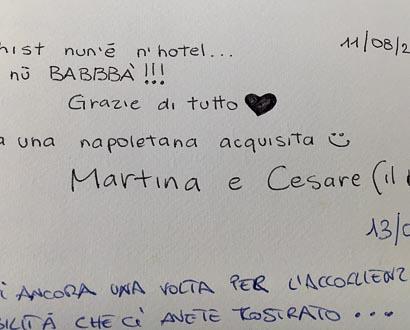 hist nun'é n'hotel... 11/08/2
nū BABBBÀ!!!
Grazie di tutto
a una napoletana acquisita
Martina e Cesare (il
13/0
i ANCORA UNA VOLTA PER L'ACCOGLIENZ
BILITÀ CHE CI AVETE MOSTRATO ...